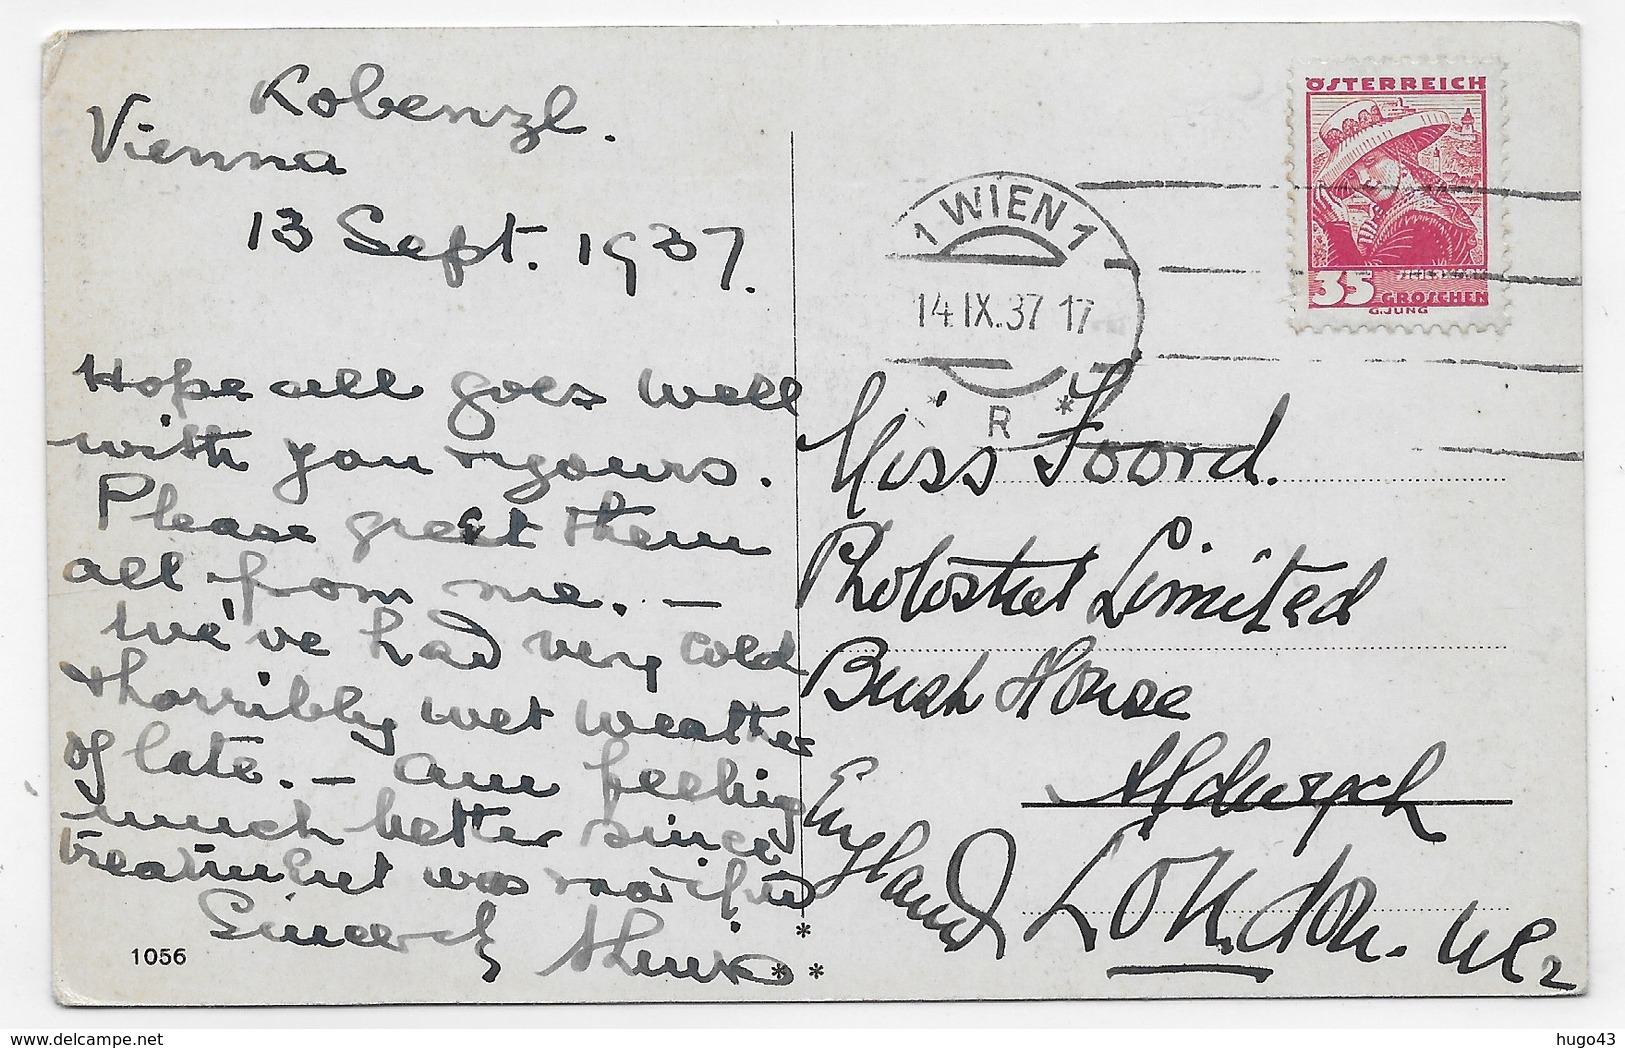 Kobenzl.
Vienna
13 Sept. 1937.
Hope all goes well
with you & yours.
Please greet them
all from me. —
We've had very cold
& horribly wet weather
of late. — Am feeling
much better since
treatment was
Sincerely
1056
ÖSTERREICH
35
GROSCHEN
G.JUNG
1 WIEN 1
14.IX.37 17
* R *
Miss Foord.
Photostat Limited
Bush House
Aldwych
London. WC2
England
hugo43